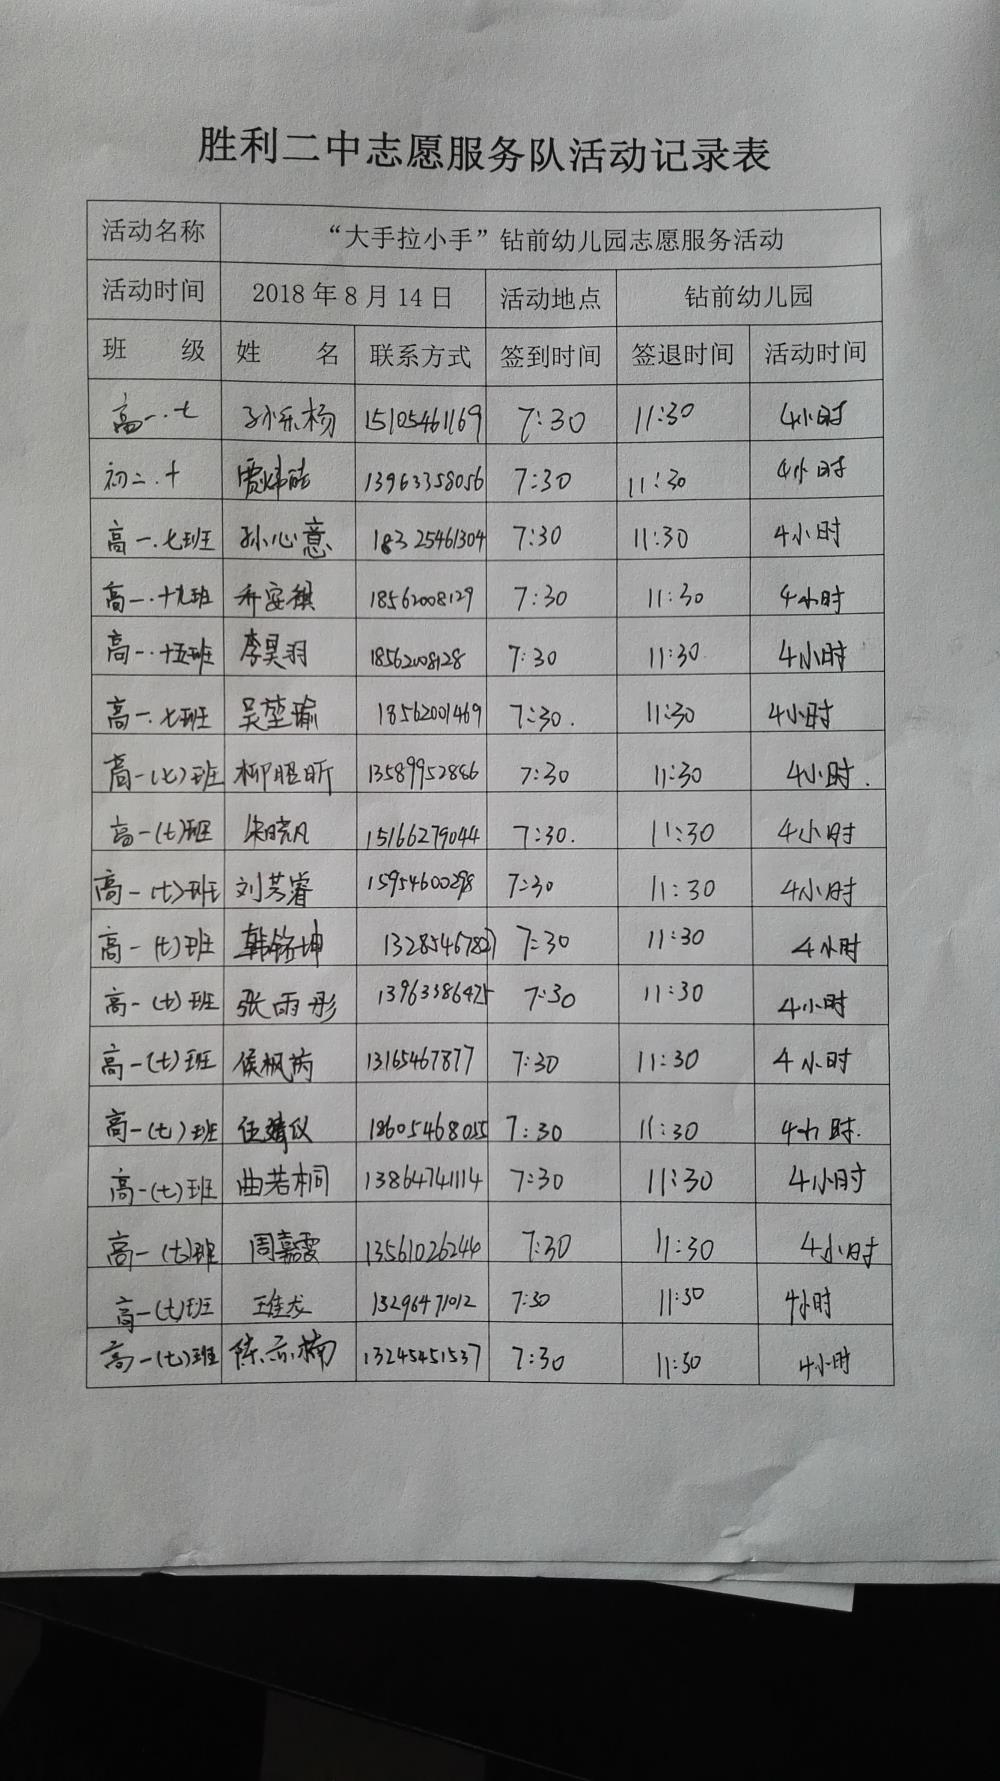 胜利二中志愿服务队活动记录表
活动名称 “大手拉小手”钻前幼儿园志愿服务活动
活动时间 2018年8月14日 活动地点 钻前幼儿园
班 级 姓 名 联系方式 签到时间 签退时间 活动时间
高一.七 孙乐杨 15105461169 7:30 11:30 4小时
初二.十 贾炜 13963358056 7:30 11:30 4小时
高一.七班 孙心意 18325461304 7:30 11:30 4小时
高一.十九班 乔安祺 18562008129 7:30 11:30 4小时
高一.十五班 李昊羽 18562008128 7:30 11:30 4小时
高一.七班 吴堃瑜 18562001469 7:30. 11:30 4小时
高一(七)班 柳昕 13589952886 7:30 11:30 4小时.
高一(七)班 朱晓凡 15166279044 7:30. 11:30 4小时
高一(七)班 刘芳睿 15954600298 7:30 11:30 4小时
高一(七)班 韩铭坤 13285467827 7:30 11:30 4小时
高一(七)班 张雨彤 13963386475 7:30 11:30 4小时
高一(七)班 侯枫芮 13165467877 7:30 11:30 4小时
高一(七)班 任婧仪 18605468055 7:30 11:30 4小时.
高一(七)班 曲若桐 13864741114 7:30 11:30 4小时
高一(七)班 周嘉雯 13561026244 7:30 11:30 4小时
高一(七)班 王维龙 13296471012 7:30 11:30 4小时
高一(七)班 陈亦楠 13245451537 7:30 11:30 4小时